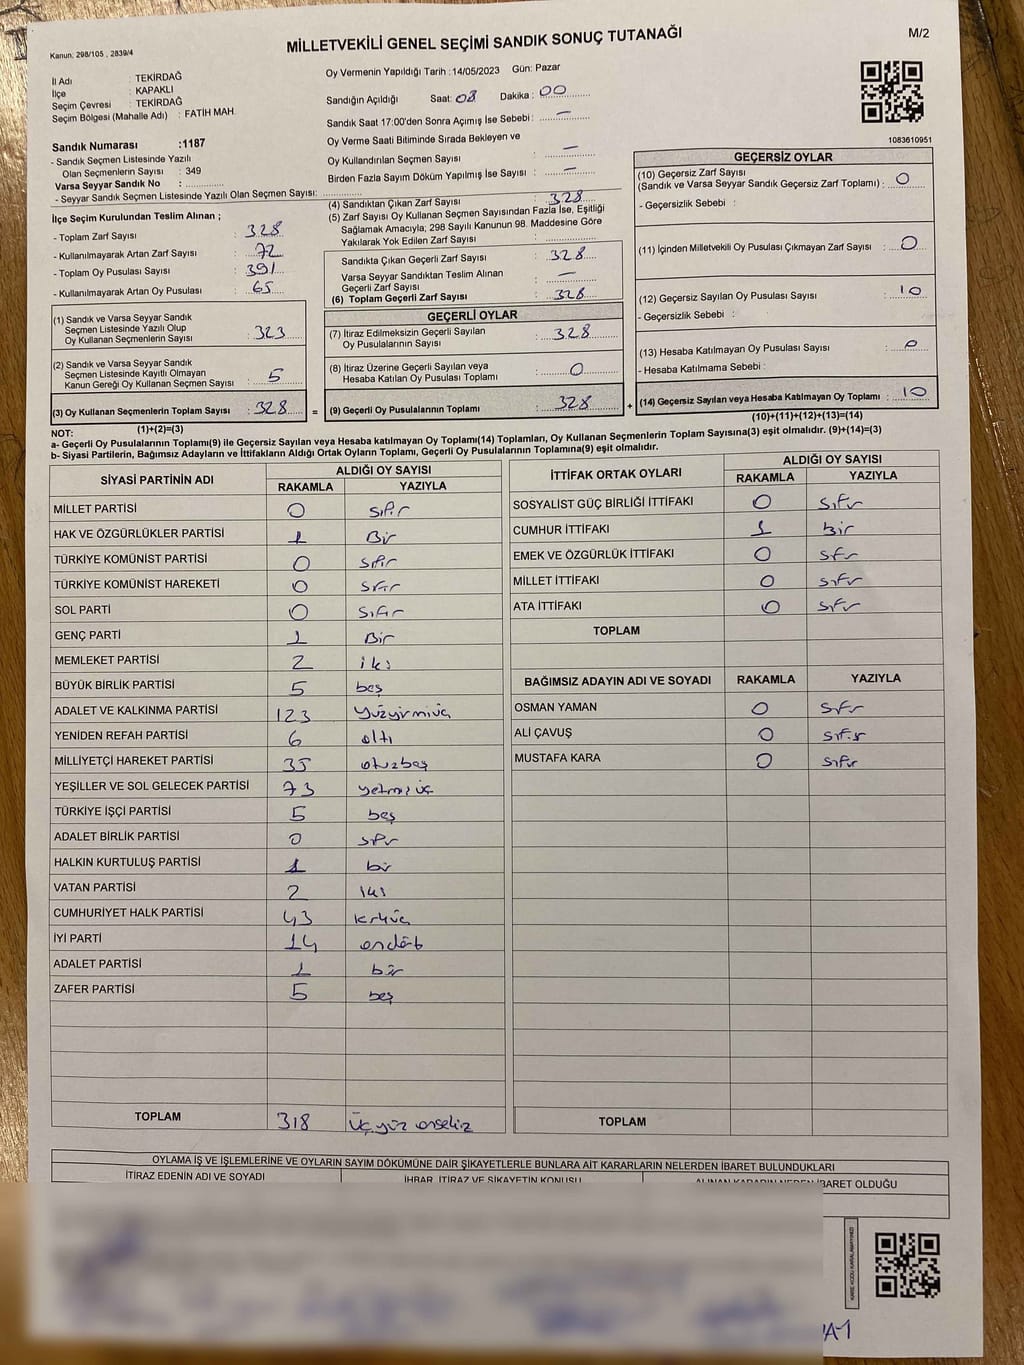 Kanun: 298/105 , 2839/4
MİLLETVEKİLİ GENEL SEÇİMİ SANDIK SONUÇ TUTANAĞI
M/2
İl Adı : TEKİRDAĞ
İlçe : KAPAKLI
Seçim Çevresi : TEKİRDAĞ
Seçim Bölgesi (Mahalle Adı) : FATİH MAH
Oy Vermenin Yapıldığı Tarih : 14/05/2023 Gün: Pazar
Sandığın Açıldığı Saat: 08 Dakika : 00
Sandık Saat 17:00'den Sonra Açımış İse Sebebi : —
Oy Verme Saati Bitiminde Sırada Bekleyen ve
Oy Kullandırılan Seçmen Sayısı : —
Birden Fazla Sayım Döküm Yapılmış İse Sayısı : —
1083610951
Sandık Numarası :1187
- Sandık Seçmen Listesinde Yazılı
Olan Seçmenlerin Sayısı : 349
Varsa Seyyar Sandık No :
- Seyyar Sandık Seçmen Listesinde Yazılı Olan Seçmen Sayısı:
İlçe Seçim Kurulundan Teslim Alınan ;
- Toplam Zarf Sayısı : 328
- Kullanılmayarak Artan Zarf Sayısı : 72
- Toplam Oy Pusulası Sayısı : 391
- Kullanılmayarak Artan Oy Pusulası : 65
(1) Sandık ve Varsa Seyyar Sandık
Seçmen Listesinde Yazılı Olup
Oy Kullanan Seçmenlerin Sayısı : 323
(2) Sandık ve Varsa Seyyar Sandık
Seçmen Listesinde Kayıtlı Olmayan
Kanun Gereği Oy Kullanan Seçmen Sayısı : 5
(3) Oy Kullanan Seçmenlerin Toplam Sayısı : 328 =
(1)+(2)=(3)
(4) Sandıktan Çıkan Zarf Sayısı : 328
(5) Zarf Sayısı Oy Kullanan Seçmen Sayısından Fazla İse, Eşitliği
Sağlamak Amacıyla; 298 Sayılı Kanunun 98. Maddesine Göre
Yakılarak Yok Edilen Zarf Sayısı :
Sandıkta Çıkan Geçerli Zarf Sayısı : 328
Varsa Seyyar Sandıktan Teslim Alınan
Geçerli Zarf Sayısı : —
(6) Toplam Geçerli Zarf Sayısı : 328
GEÇERLİ OYLAR
(7) İtiraz Edilmeksizin Geçerli Sayılan
Oy Pusulalarının Sayısı : 328
(8) İtiraz Üzerine Geçerli Sayılan veya
Hesaba Katılan Oy Pusulası Toplamı : 0
(9) Geçerli Oy Pusulalarının Toplamı : 328 +
GEÇERSİZ OYLAR
(10) Geçersiz Zarf Sayısı
(Sandık ve Varsa Seyyar Sandık Geçersiz Zarf Toplamı) : 0
- Geçersizlik Sebebi :
(11) İçinden Milletvekili Oy Pusulası Çıkmayan Zarf Sayısı : 0
(12) Geçersiz Sayılan Oy Pusulası Sayısı : 10
- Geçersizlik Sebebi :
(13) Hesaba Katılmayan Oy Pusulası Sayısı : 0
- Hesaba Katılmama Sebebi :
(14) Geçersiz Sayılan veya Hesaba Katılmayan Oy Toplamı : 10
(10)+(11)+(12)+(13)=(14)
NOT:
a- Geçerli Oy Pusulalarının Toplamı(9) ile Geçersiz Sayılan veya Hesaba katılmayan Oy Toplamı(14) Toplamları, Oy Kullanan Seçmenlerin Toplam Sayısına(3) eşit olmalıdır. (9)+(14)=(3)
b- Siyasi Partilerin, Bağımsız Adayların ve İttifakların Aldığı Ortak Oyların Toplamı, Geçerli Oy Pusulalarının Toplamına(9) eşit olmalıdır.
SİYASİ PARTİNİN ADI ALDIĞI OY SAYISI
RAKAMLA YAZIYLA
MİLLET PARTİSİ 0 sıfır
HAK VE ÖZGÜRLÜKLER PARTİSİ 1 Bir
TÜRKİYE KOMÜNİST PARTİSİ 0 sıfır
TÜRKİYE KOMÜNİST HAREKETİ 0 sıfır
SOL PARTİ 0 sıfır
GENÇ PARTİ 1 Bir
MEMLEKET PARTİSİ 2 iki
BÜYÜK BİRLİK PARTİSİ 5 beş
ADALET VE KALKINMA PARTİSİ 123 Yüzyirmiüç
YENİDEN REFAH PARTİSİ 6 altı
MİLLİYETÇİ HAREKET PARTİSİ 35 otuzbeş
YEŞİLLER VE SOL GELECEK PARTİSİ 73 yetmişüç
TÜRKİYE İŞÇİ PARTİSİ 5 beş
ADALET BİRLİK PARTİSİ 0 sıfır
HALKIN KURTULUŞ PARTİSİ 1 bir
VATAN PARTİSİ 2 iki
CUMHURİYET HALK PARTİSİ 43 kırküç
İYİ PARTİ 14 ondört
ADALET PARTİSİ 1 bir
ZAFER PARTİSİ 5 beş
TOPLAM 318 Üçyüz onsekiz
İTTİFAK ORTAK OYLARI ALDIĞI OY SAYISI
RAKAMLA YAZIYLA
SOSYALİST GÜÇ BİRLİĞİ İTTİFAKI 0 sıfır
CUMHUR İTTİFAKI 1 bir
EMEK VE ÖZGÜRLÜK İTTİFAKI 0 sıfır
MİLLET İTTİFAKI 0 sıfır
ATA İTTİFAKI 0 sıfır
TOPLAM
BAĞIMSIZ ADAYIN ADI VE SOYADI RAKAMLA YAZIYLA
OSMAN YAMAN 0 sıfır
ALİ ÇAVUŞ 0 sıfır
MUSTAFA KARA 0 sıfır
TOPLAM
OYLAMA İŞ VE İŞLEMLERİNE VE OYLARIN SAYIM DÖKÜMÜNE DAİR ŞİKAYETLERLE BUNLARA AİT KARARLARIN NELERDEN İBARET BULUNDUKLARI
İTİRAZ EDENİN ADI VE SOYADI İHBAR, İTİRAZ VE ŞİKAYETİN KONUSU ALINAN KARARIN NEDEN İBARET OLDUĞU
KARE KODU KARALAMAYINIZ!